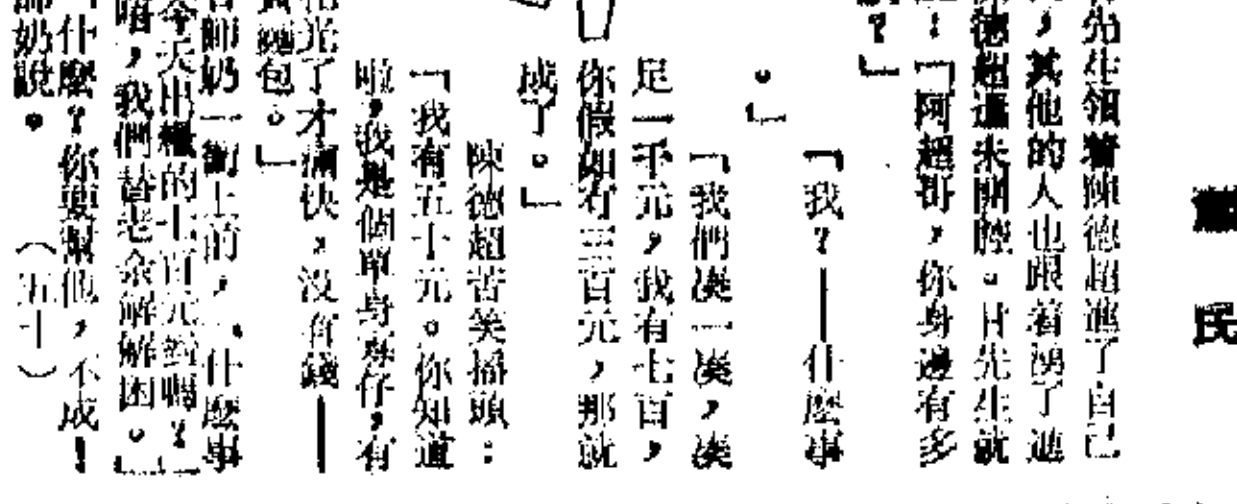 民
先生領着陳德超進了自己
，其他的人也跟着湧了進
德超還未開腔。甘先生就
：「阿超哥，你身邊有多
？」
「我？——什麼事
。」
「我們湊一湊，湊
足一千元，我有七百，
你假如有三百元，那就
成了。」
陳德超苦笑搖頭：
「我有五十元。你知道
啦，我是個單身寡仔，有
光了才痛快，沒有錢——
包。」
師奶一衝上前，「什麼事
今天出糧的七百元對嗎？」
，我們替老余解解困。」
什麼？你要幫他，不成！
師奶說。（五十）